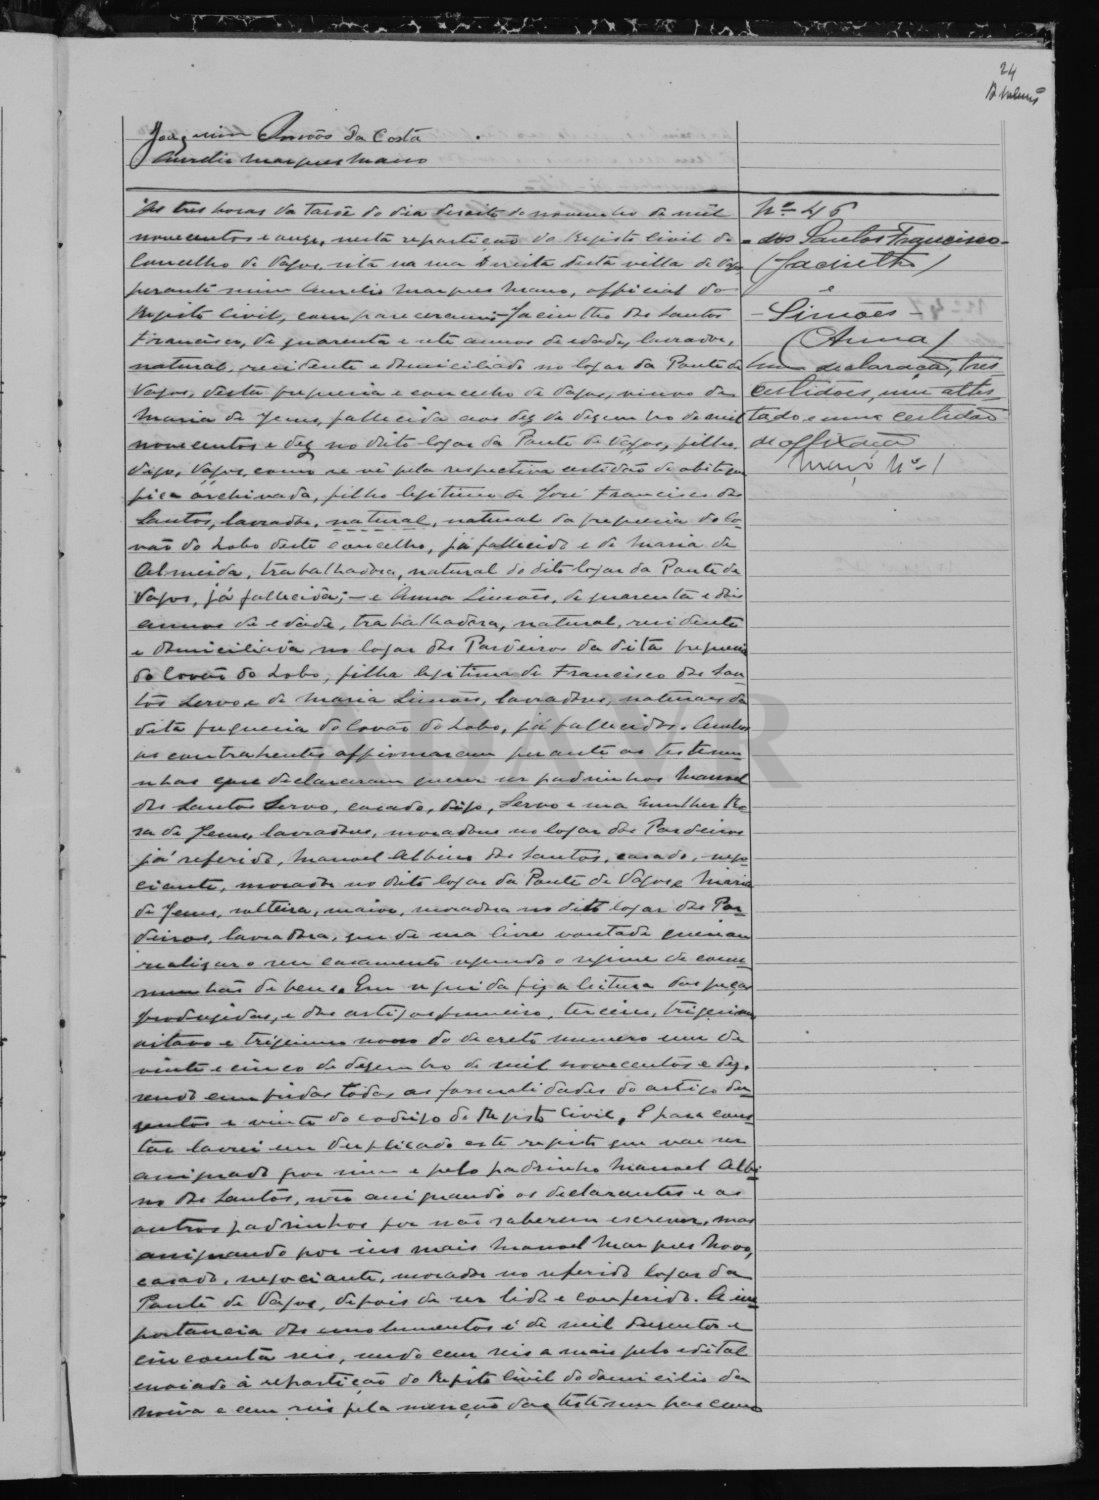 24
Joaquim Simões da Costa
Aurelio Marques Mano
Nº 46
dos Santos Francisco
(Jacintho)
e
Simões
(Anna)
Uma declaração, tres
certidões, um attes
tado e uma certidão
de affixação
Maço Nº 1
As tres horas da tarde do dia dezoito de novembro de mil
novecentos e onze, nesta repartição do Registo Civil do
Concelho de Vagos, sita na rua Direita desta villa de Vagos
perante mim Aurelio Marques Mano, official do
Registo Civil, compareceram Jacintho dos Santos
Francisco, de quarenta e sete annos de edade, lavrador,
natural, residente e domiciliado no logar da Ponte de
Vagos, desta freguesia e concelho de Vagos, viuvo de
Maria de Jesus, fallecida aos dez de dezembro de mil
novecentos e dez no dito logar da Ponte de Vagos, filho
digo, Vagos, como se vê pela respectiva certidão de obito que
fica archivada, filho legitimo de José Francisco dos
Santos, lavrador, natural, natural da freguesia do Co-
vão do Lobo deste concelho, já fallecido e de Maria de
Almeida, trabalhadora, natural do dito logar da Ponte de
Vagos, já fallecida; — e Anna Simões, de quarenta e dois
annos de edade, trabalhadora, natural, residente
e domiciliada no logar dos Pardeiros da dita freguesia
do Covão do Lobo, filha legitima de Francisco dos San-
tos Servo e de Maria Simões, lavradores, naturaes da
dita freguesia do Covão do Lobo, já fallecidos. Ambos
os contrahentes affirmaram perante as testemu-
nhas que declararam querer ser padrinhos Manoel
dos Santos Servo, casado, digo, Servo e sua mulher Ro-
sa de Jesus, lavradores, moradores no logar dos Pardeiros
já referido, Manoel Albino dos Santos, casado, nego-
ciante, morador no dito logar da Ponte de Vagos e Maria
de Jesus, solteira, maior, moradora no dito logar dos Par-
deiros, lavradora, que de sua livre vontade queriam
realizar o seu casamento segundo o regime de comu-
nhão de bens. Em seguida fiz a leitura das peças
produzidas, e dos artigos primeiro, terceiro, trigesimo
oitavo e trigesimo nono do decreto numero um de
vinte e cinco de dezembro de mil novecentos e dez,
sendo cumpridas todas as formalidades do artigo du-
zentos e vinte do codigo do Registo Civil. E para cons-
tar lavrei em duplicado este registo que vae ser
assignado por mim e pelo padrinho Manoel Albi-
no dos Santos, não assignando os declarantes e os
outros padrinhos por não saberem escrever, mas
assignando por eles mais Manoel Marques Novo,
casado, negociante, morador no referido logar da
Ponte de Vagos, depois de ser lido e conferido. A im-
portancia dos emolumentos é de mil duzentos e
cincoenta reis, sendo cem reis a mais pelo edital
enviado à repartição do Registo Civil do domicilio da
noiva e cem reis pela menção das testemunhas como